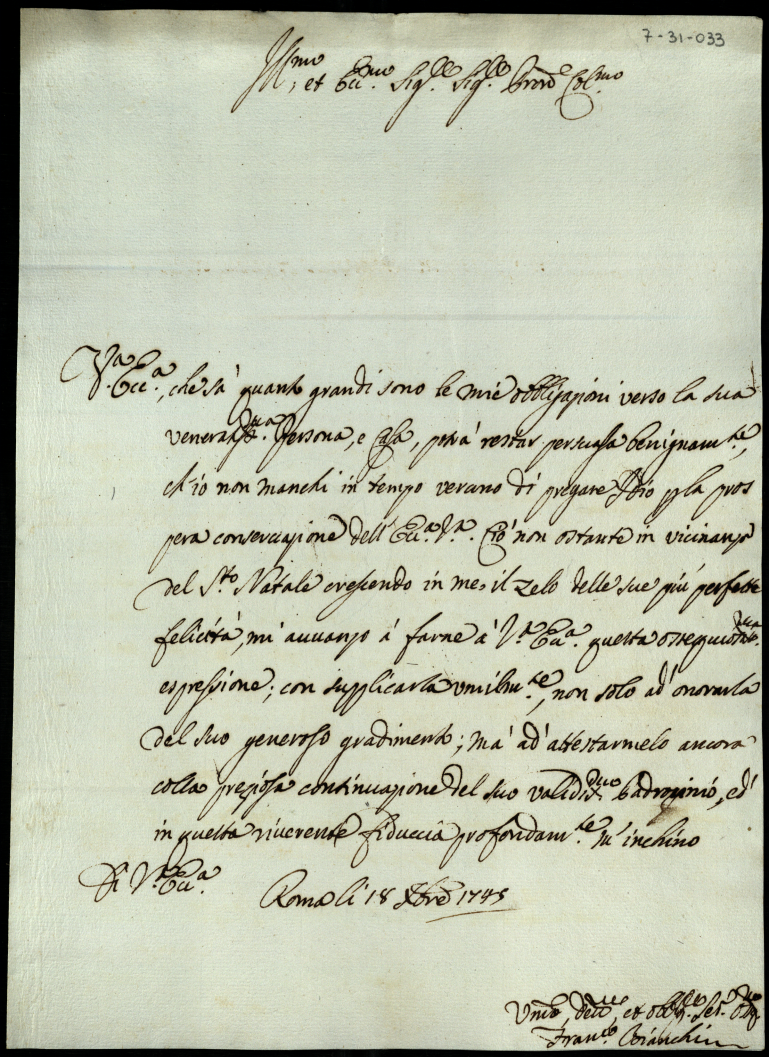 7-31-033
Ill.mo, et Ecc.mo Sig.re Sig.re Pron̄e Col.mo
V.a Ecc.a, che sà quanto grandi sono le mie obbligazioni verso la sua
venerat.ma Persona, e Casa, potrà restar persuasa benignam.te,
ch'io non manchi in tempo veruno di pregare Iddio p la pros
pera conservazione dell'Ecc.a V.a. Ciò non ostante in vicinanza
del S.to Natale crescendo in me il zelo delle sue più perfette
felicità, mi avvanzo à farne à V.a Ecc.a questa ossequiosis.ma
espressione; con supplicarla umilm.te, non solo ad'onorarla
del suo generoso gradimento; mà ad'attestarmelo ancora
colla preziosa continuazione del suo validis.mo Padrozinio, ed'
in questa riverente fiduccia profondam.te m'inchino
Di V.a Ecc.a
Roma li 18 Xbre 1745
Um̄o, dev.mo, et obblig.mo Ser.
Fran.co Bianchini